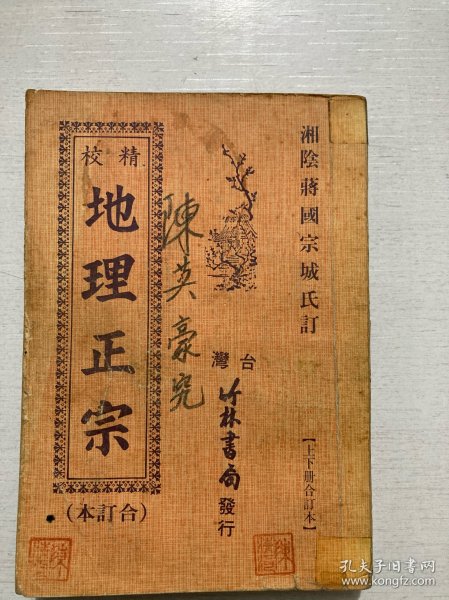 湘陰蔣國宗城氏訂
【上下册合訂本】
台灣
竹林書局發行
陳英豪究
精校
地理正宗
(合訂本)
孔夫子旧书网
kongfz.com